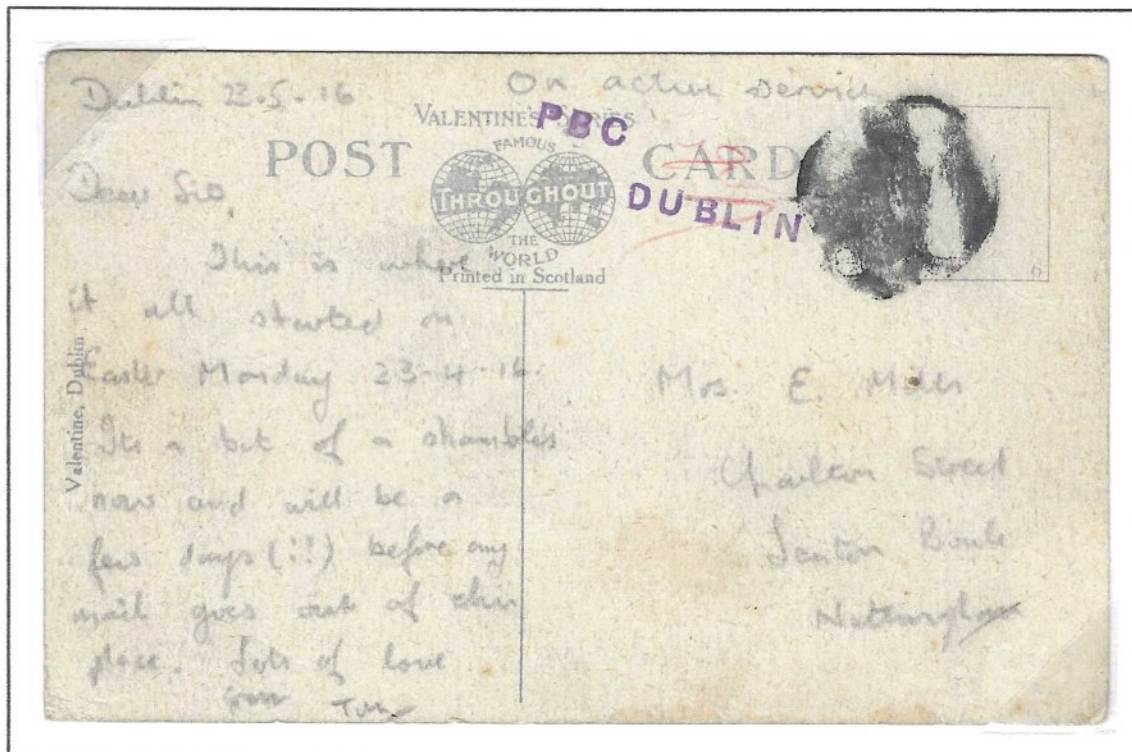 Dublin 2-5-16
On active service
VALENTINE'S SERIES
PBC
POST CARD
FAMOUS
THROUGHOUT
THE
WORLD
Printed in Scotland
DUBLIN
6
Valentine, Dublin
Dear Sis,
This is where
it all started on
Easter Monday 23-4-16.
Its a bit of a shambles
now and will be a
few days (!!) before any
mail goes out of this
place. Lots of love
from Tom
Mrs. E. Miles
Street
Lenton Boule
Nottingham